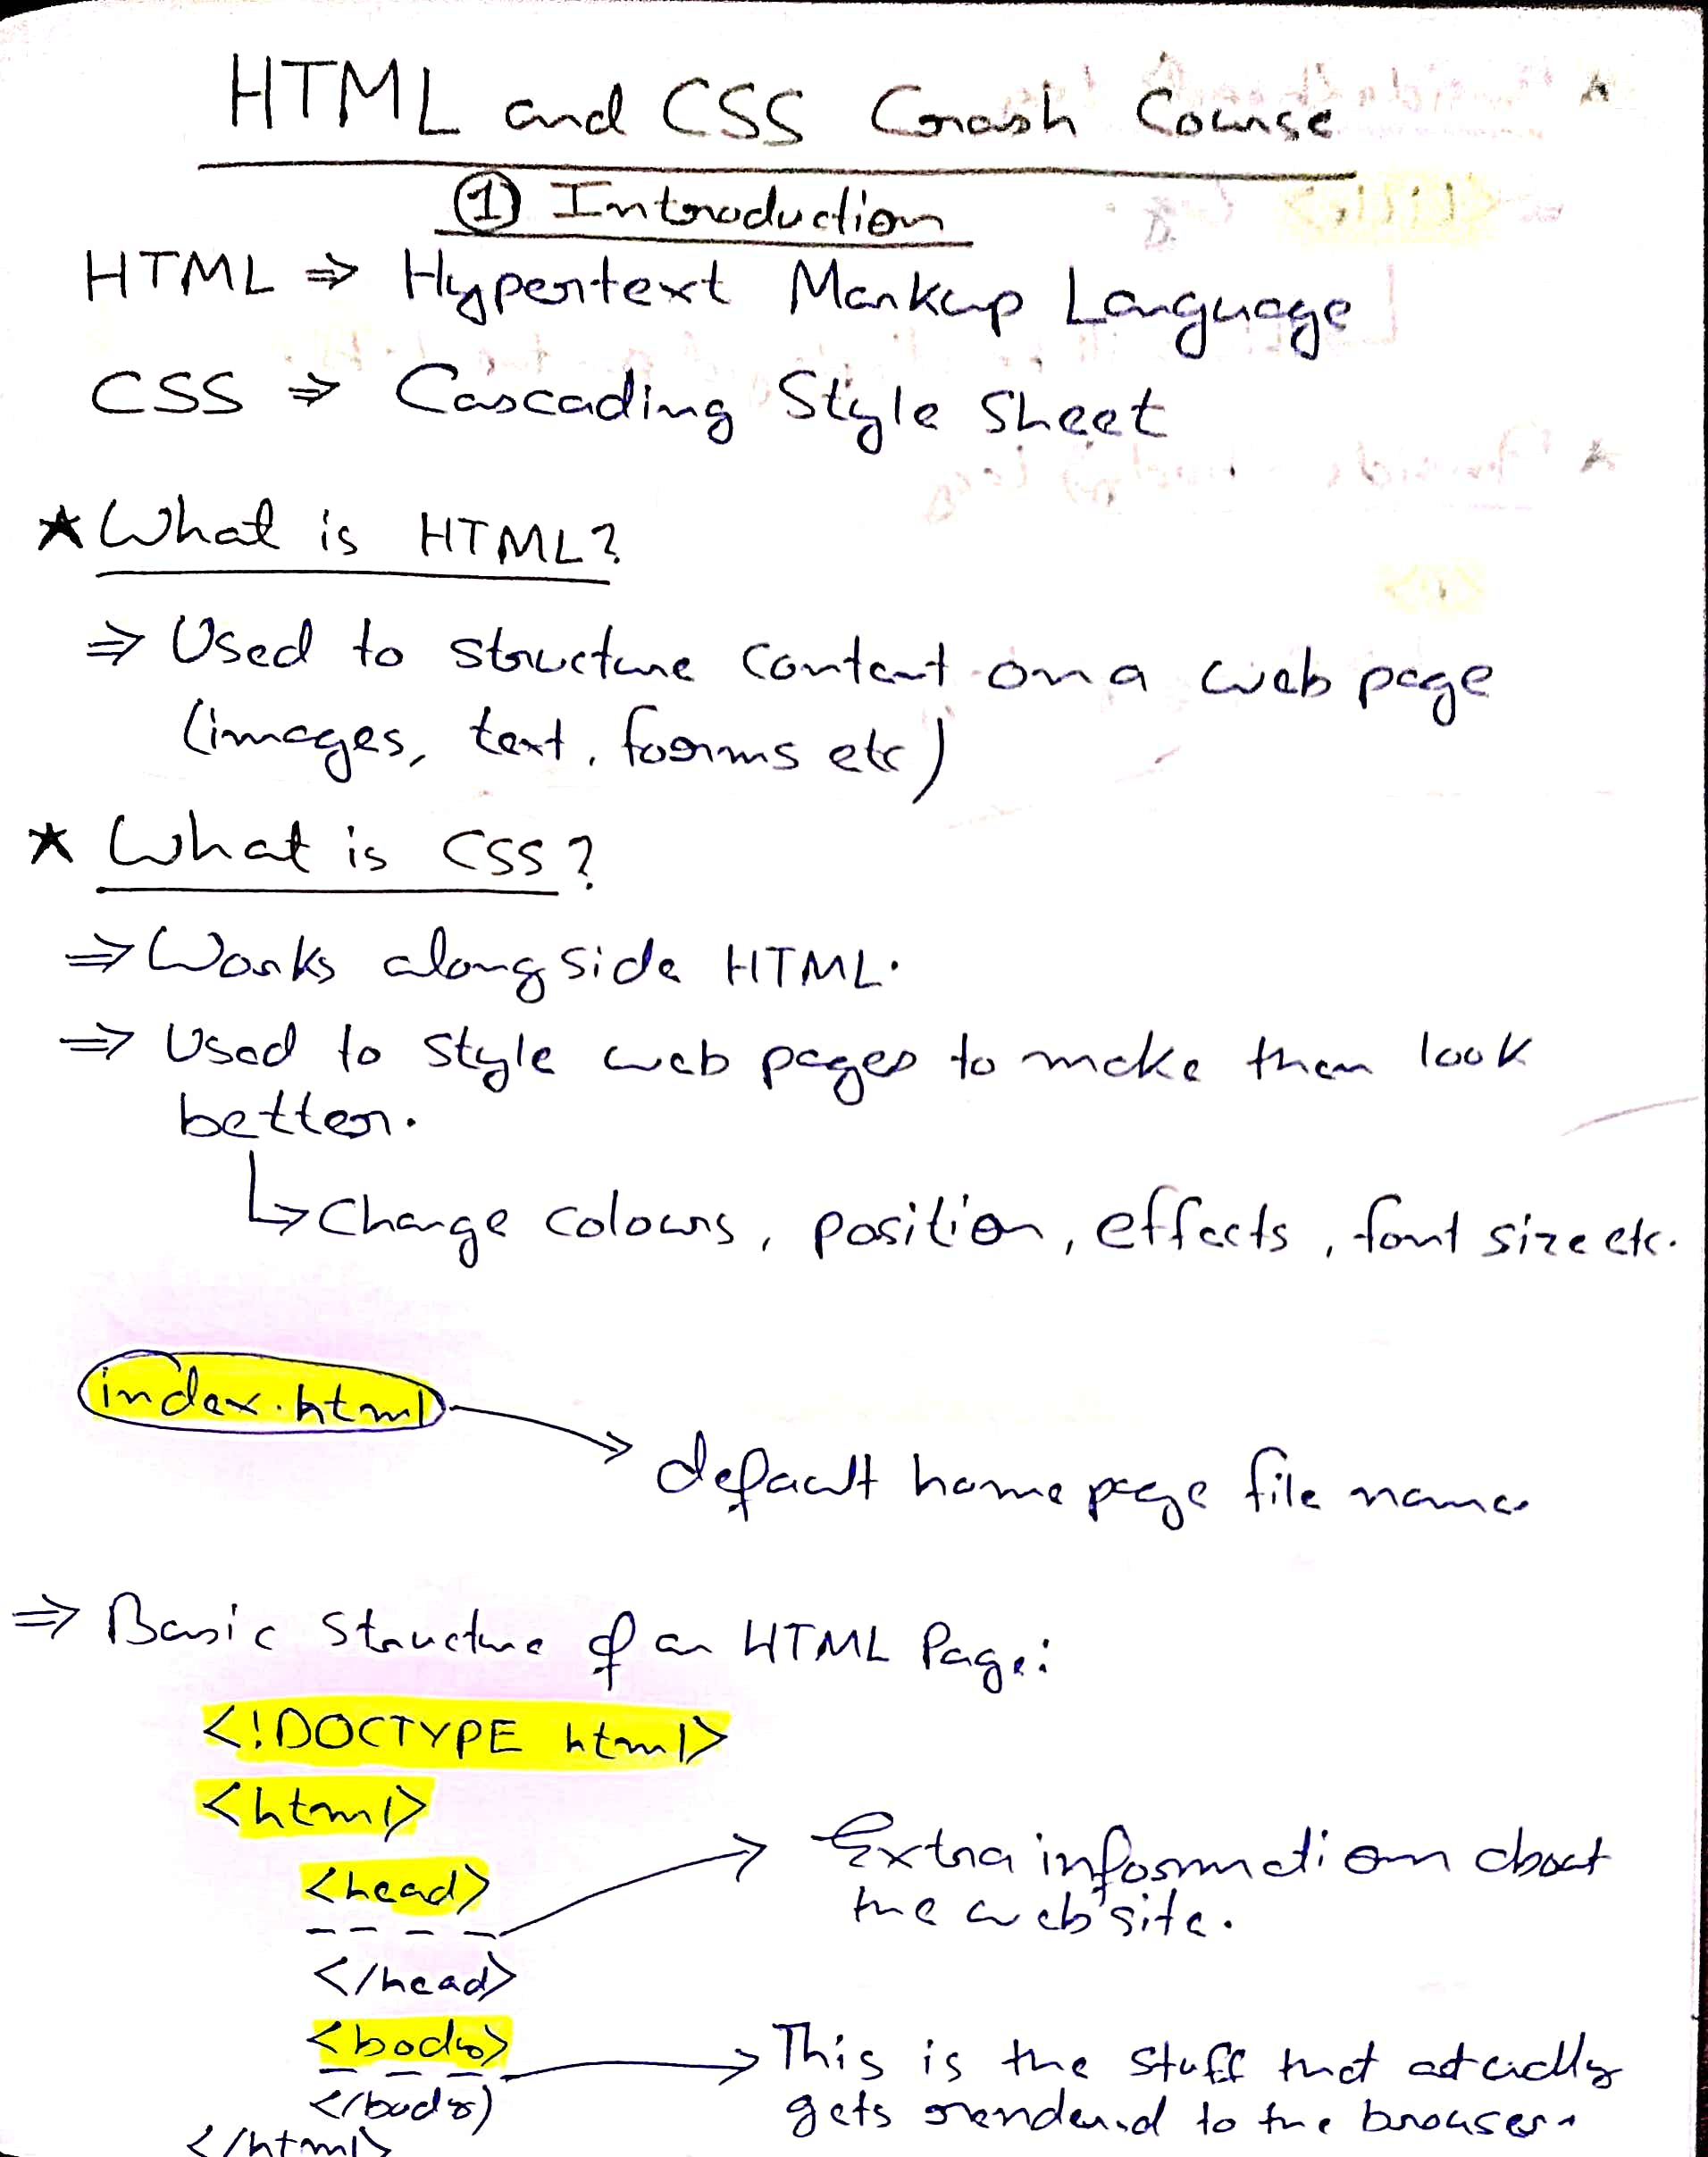 HTML and CSS Crash Course
① Introduction
HTML ⇒ Hypertext Markup Language
CSS ⇒ Cascading Style Sheet
★ What is HTML?
⇒ Used to structure content on a web page
(images, text, forms etc)
★ What is CSS?
⇒ Works alongside HTML.
⇒ Used to style web pages to make them look
better.
↳ Change colours, position, effects, font size etc.
index.html → default home page file name.
⇒ Basic structure of an HTML Page:
<!DOCTYPE html>
<html>
<head>
---- → Extra information about
the website.
</head>
<body>
---- → This is the stuff that actually
gets rendered to the browser.
</body>
</html>